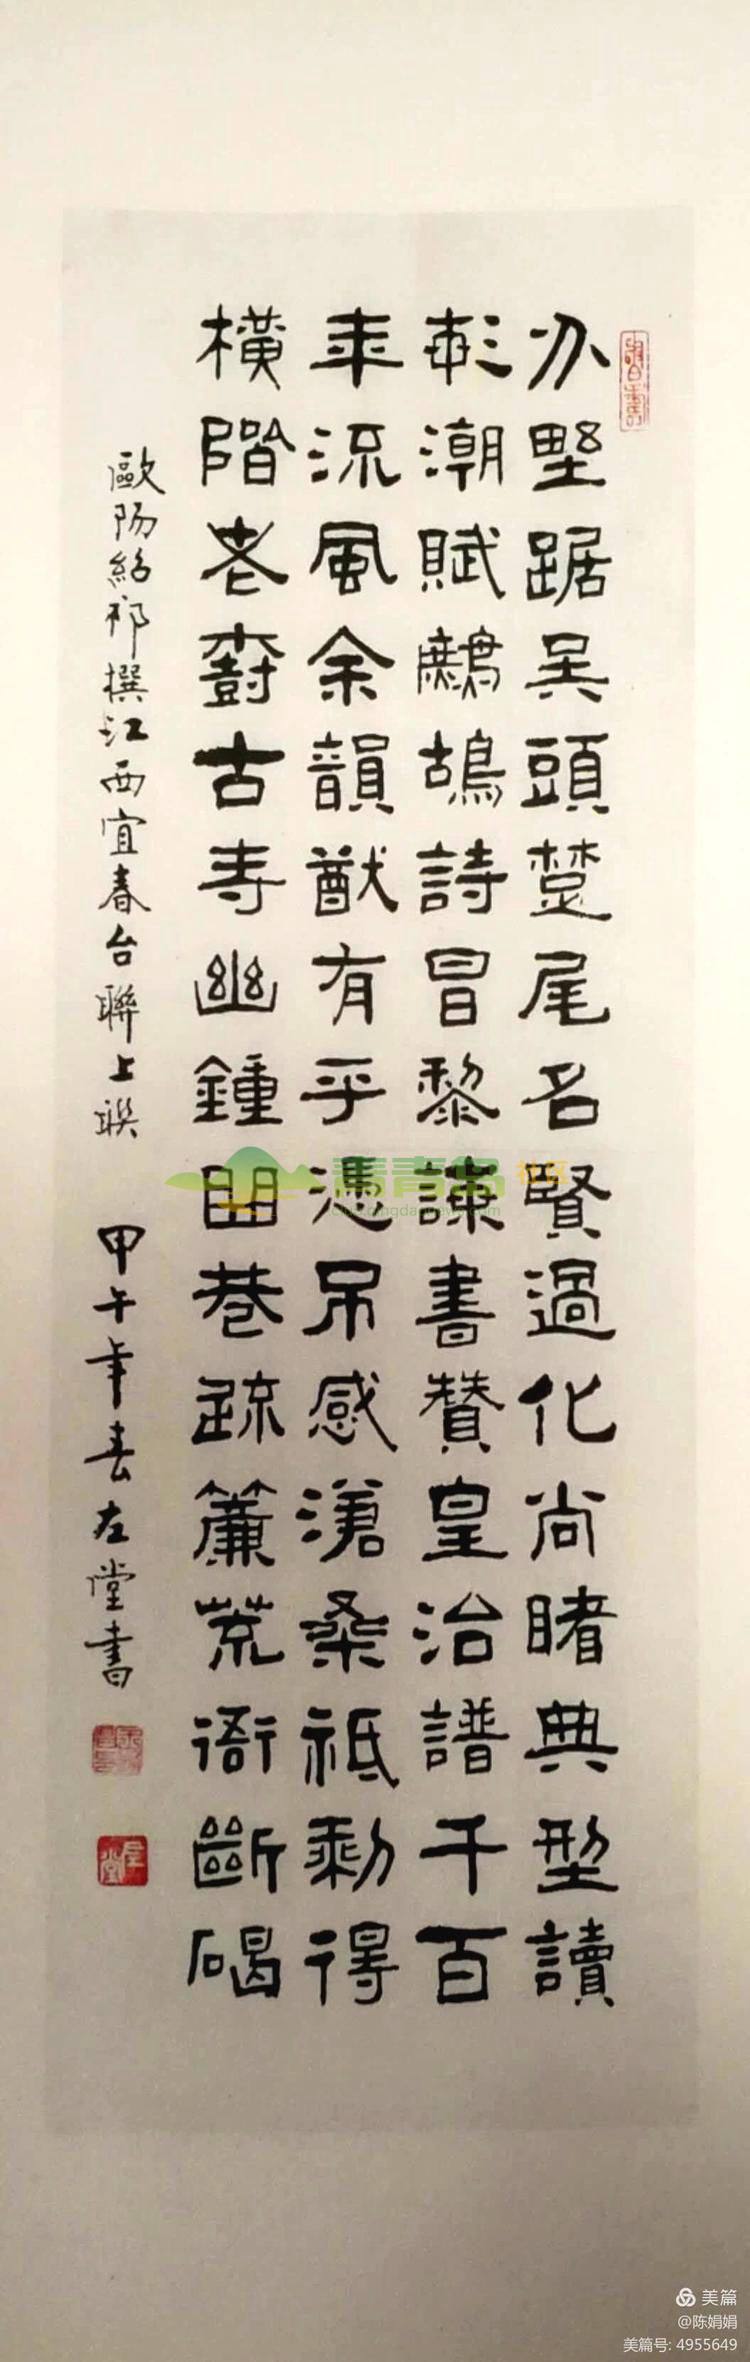 分野踞吴頭楚尾名賢過化尚睹典型讀
彭潮賦鷓鴣詩冒黎謙書贊皇治譜千百
年流風余韻猷有乎憑吊感滄桑祗剩得
橫階老樹古寺幽鍾曲巷疏簾荒衙斷碣
歐陽紹祁撰江西宜春台聯上聯
甲午年春左堂書
左堂
青青岛社区
美篇
@陈娟娟
美篇号: 4955649